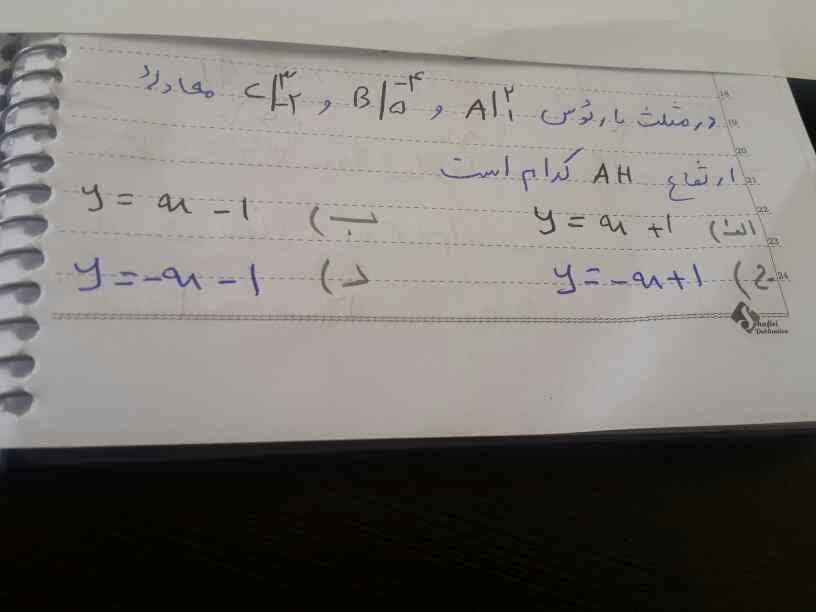 در مثلث با رئوس A|۲ ۱ و B|-۴ ۵ و C|۳ -۲ معادلهٔ
ارتفاع AH کدام است
الف) y = x + 1 ب) y = x - 1
ج) y = -x + 1 د) y = -x - 1
18
19
20
21
22
23
24
Shafiei
Publication